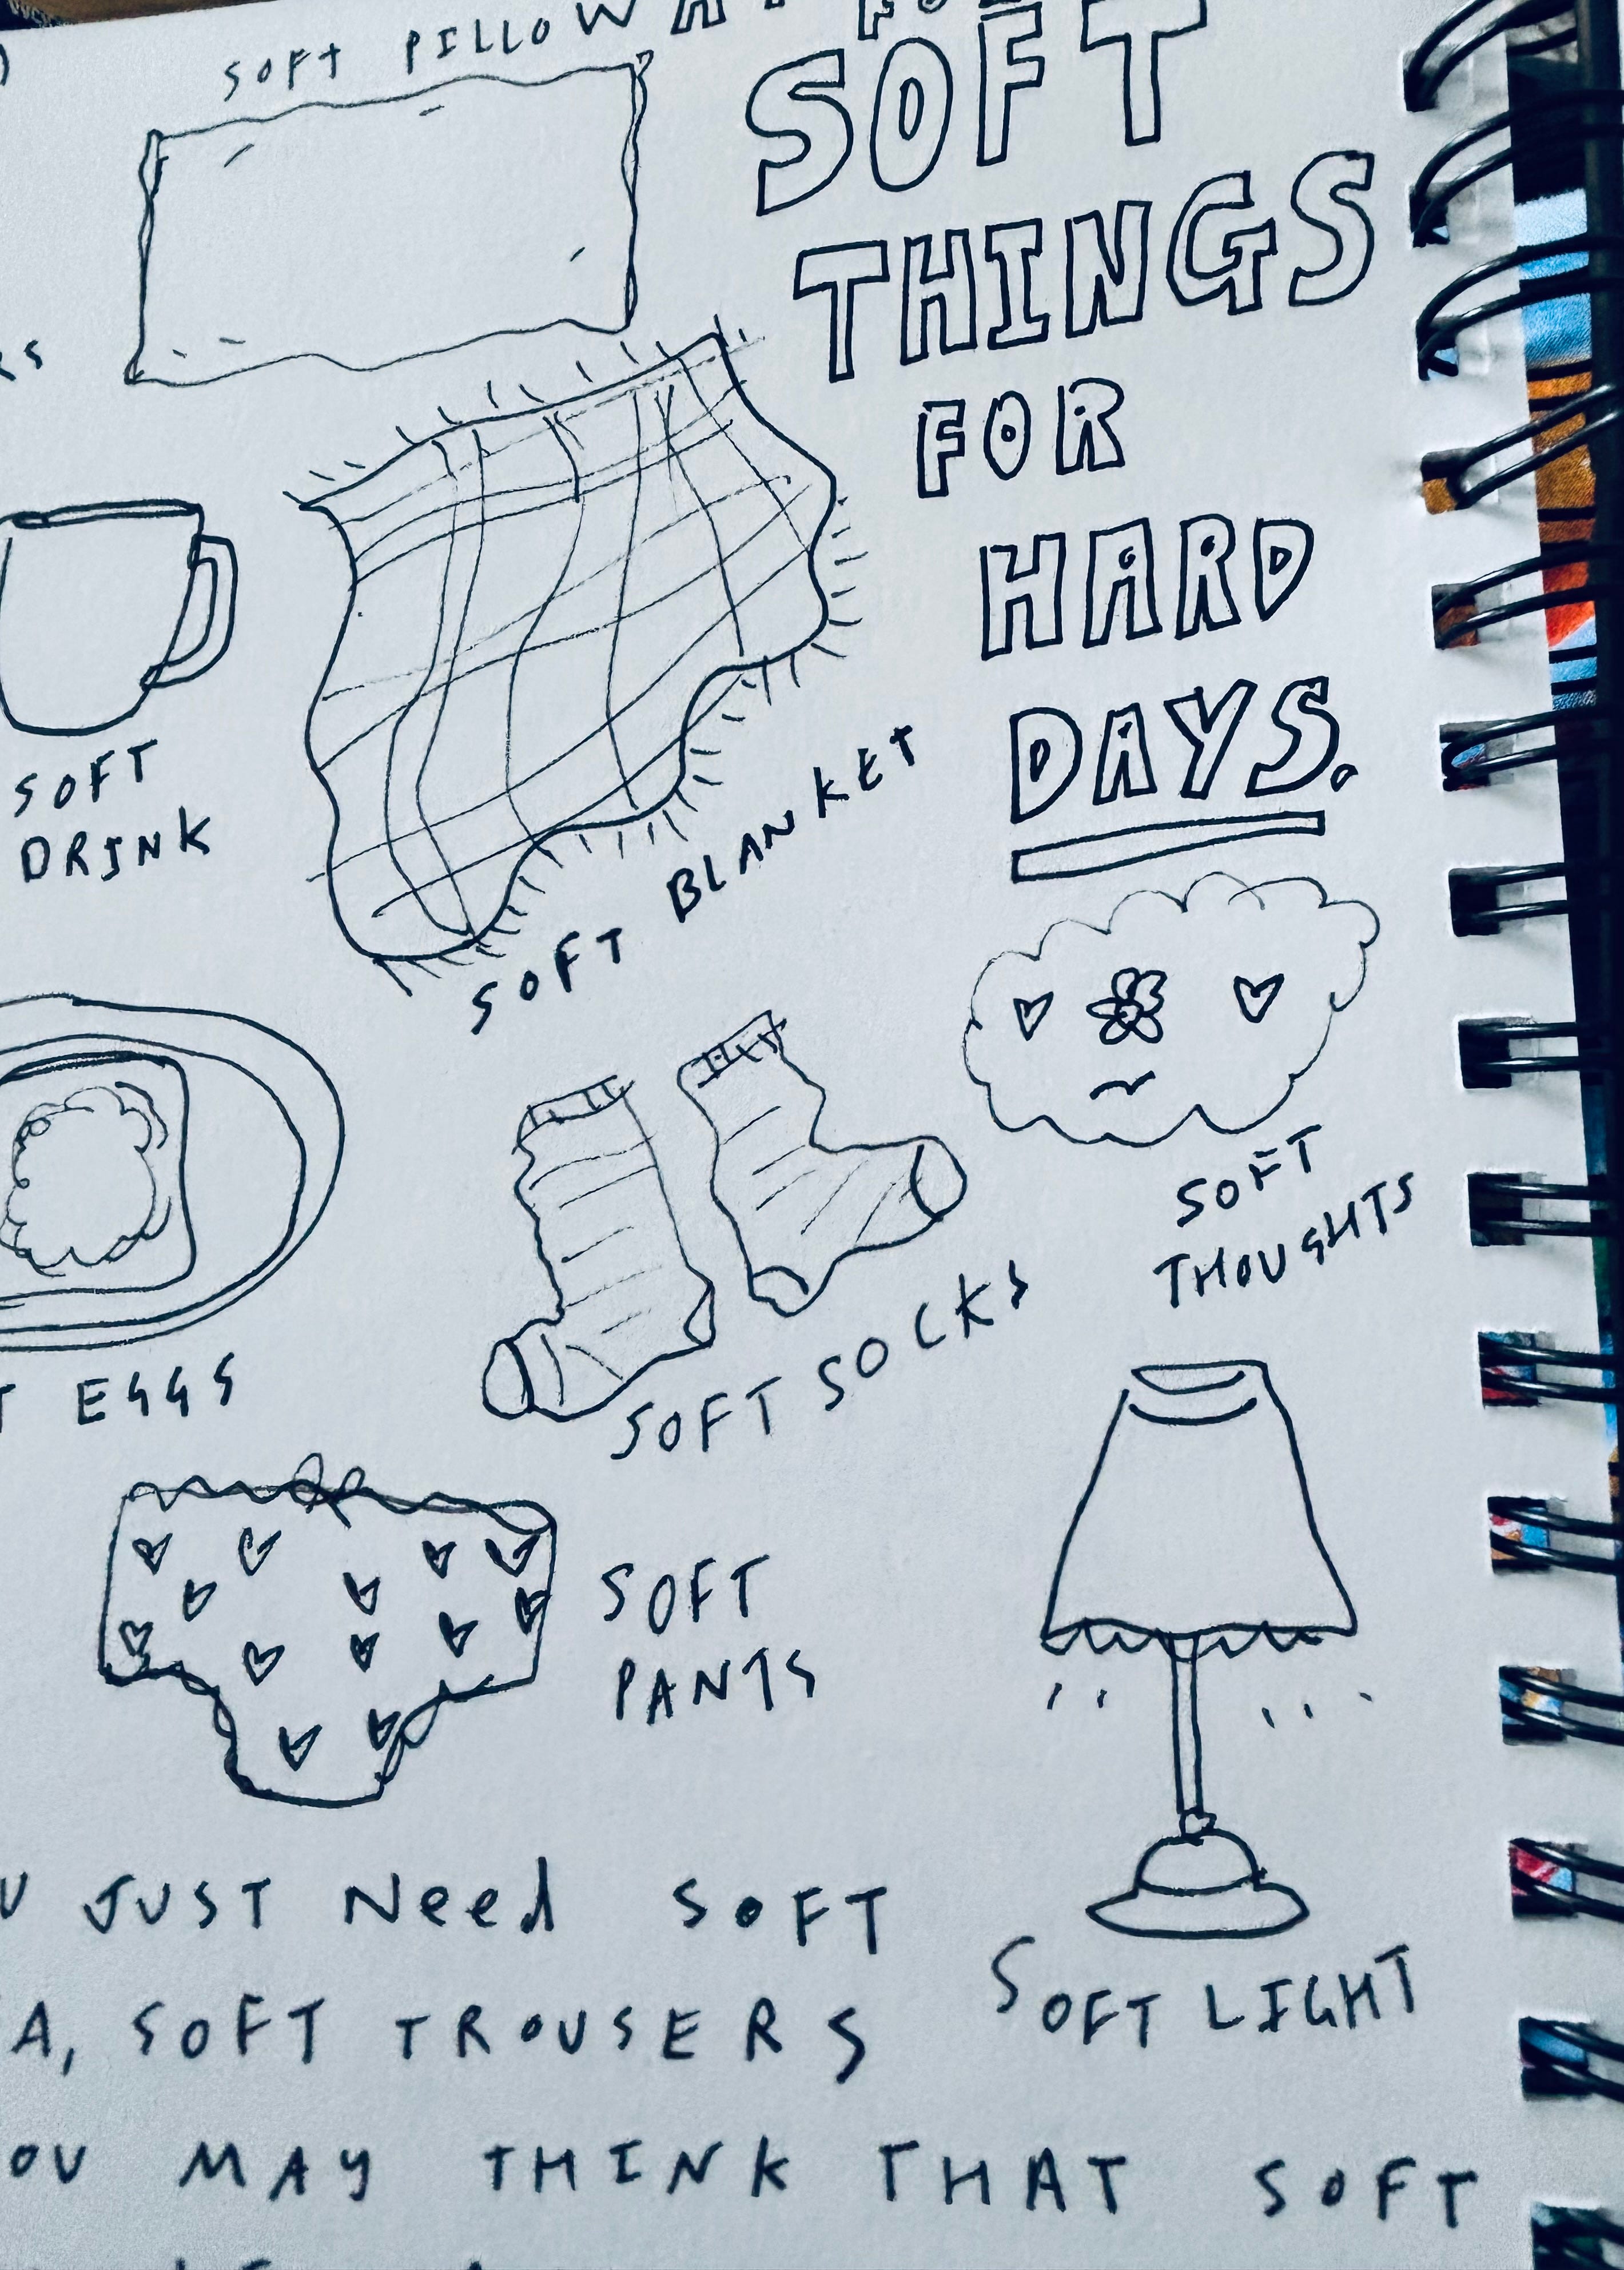 SOFT PILLOW
SOFT
THINGS
FOR
HARD
DAYS.
SOFT
DRINK
SOFT BLANKET
SOFT
THOUGHTS
EGGS
SOFT SOCKS
SOFT
PANTS
SOFT LIGHT
JUST Need SOFT
A, SOFT TROUSERS
OU MAY THINK THAT SOFT